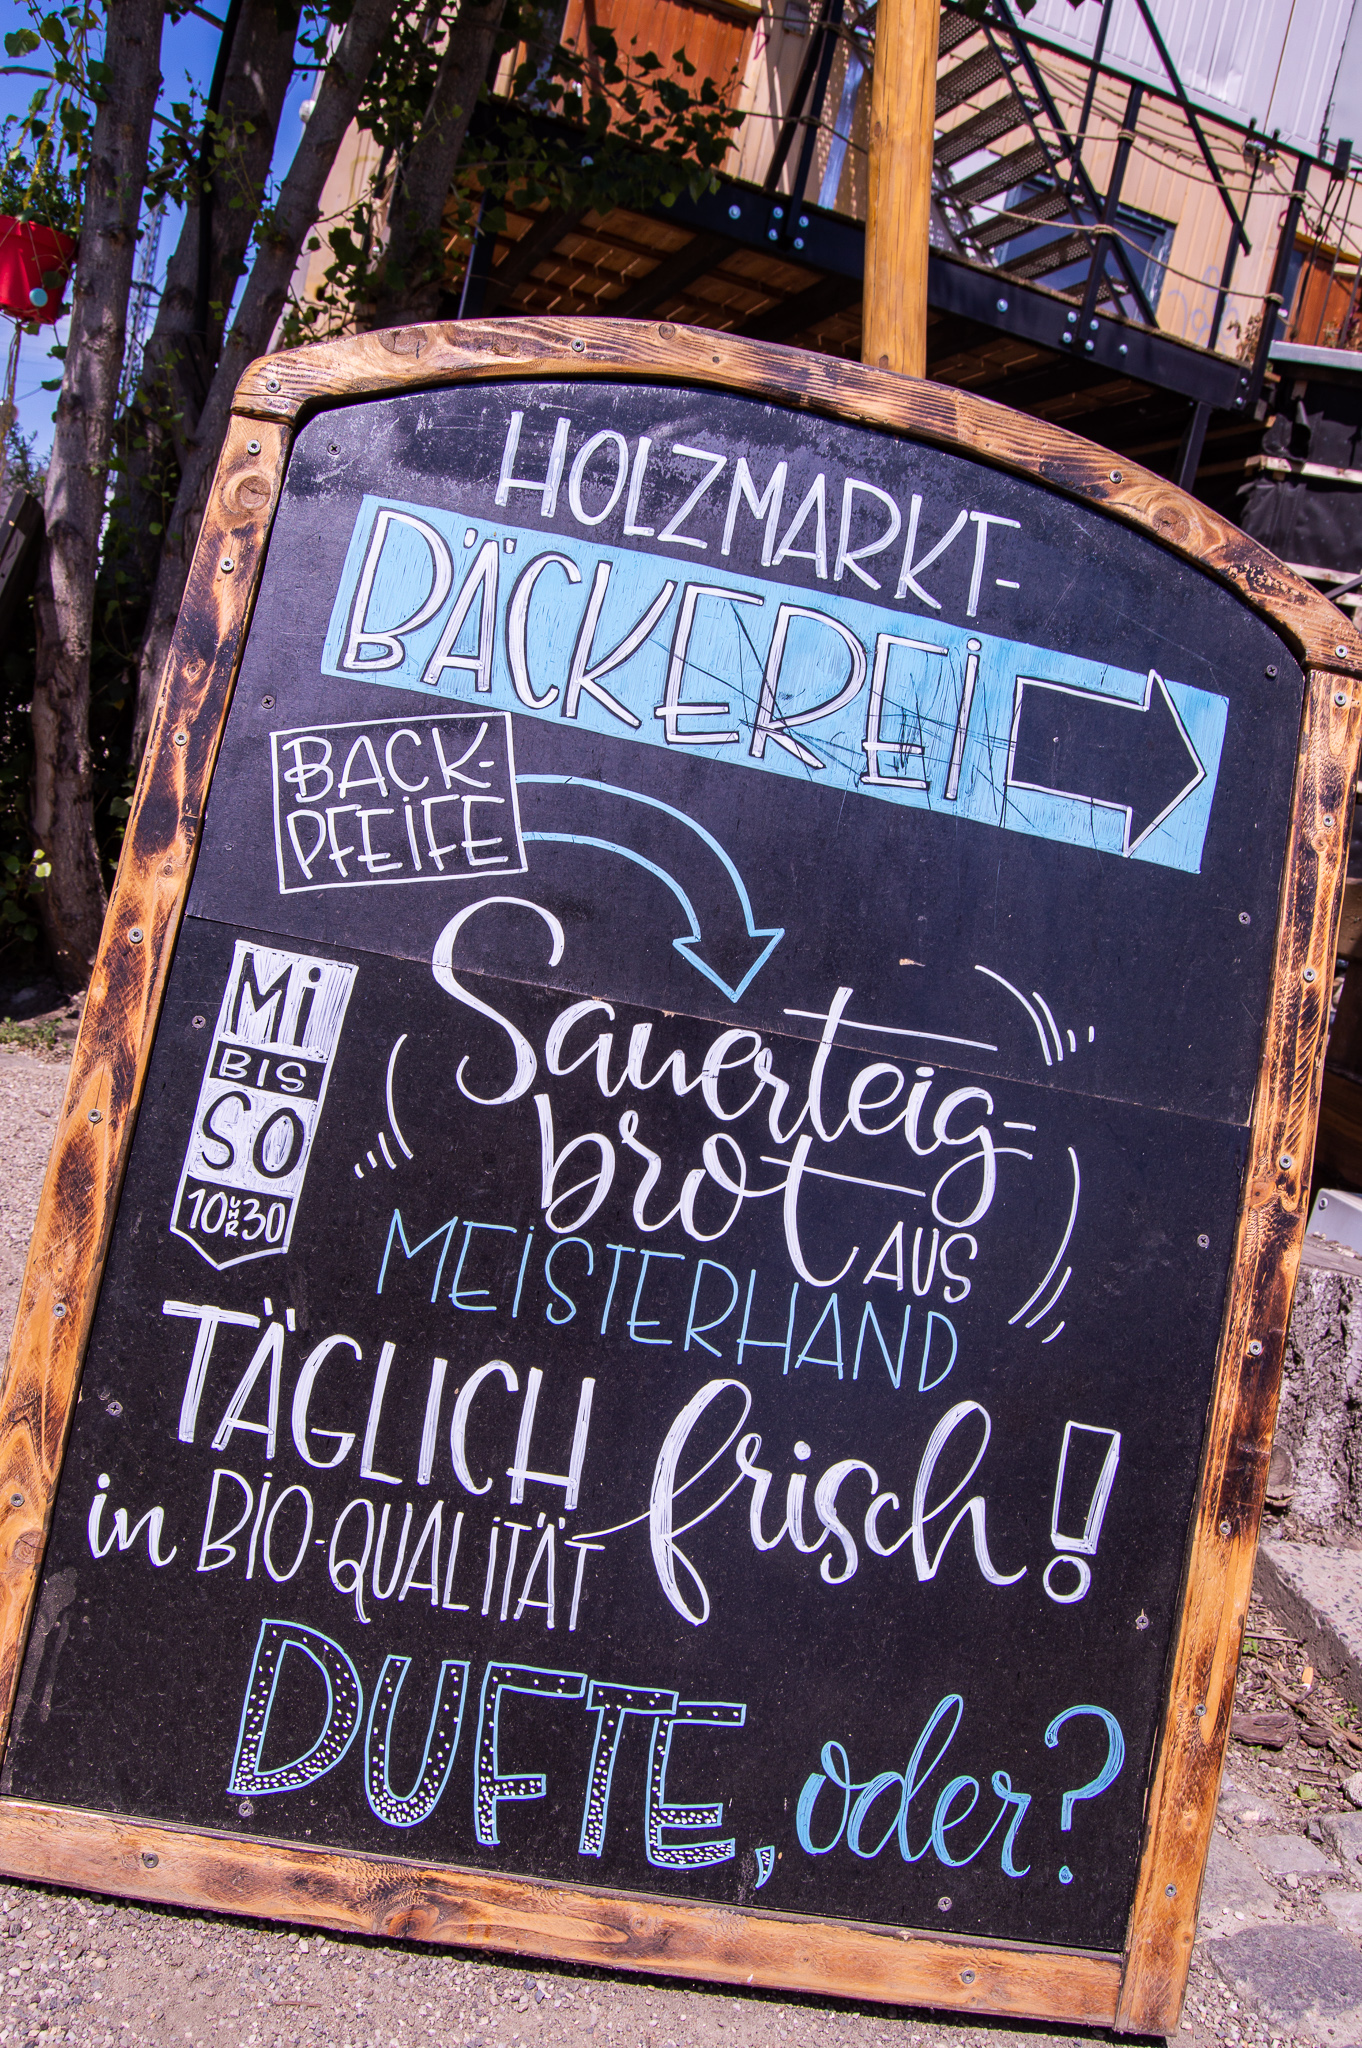 HOLZMARKT-
BÄCKEREi
BACK-
PFEiFE
Sauerteig-
brot AUS
MEiSTERHAND
Mi
BIS
SO
10 UHR 30
TÄGLICH frisch!
in BiO-QUALiTÄT
DUFTE, oder?